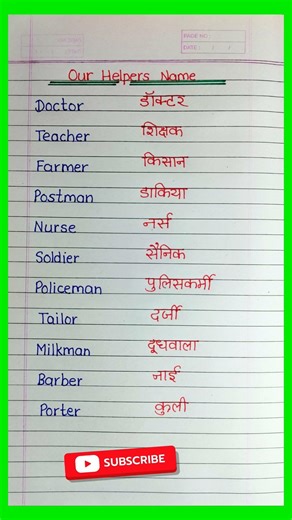 PAGE NO.:
DATE: / /
Our Helpers Name
Doctor डॉक्टर
Teacher शिक्षक
Farmer किसान
Postman डाकिया
Nurse नर्स
Soldier सैनिक
Policeman पुलिसकर्मी
Tailor दर्जी
Milkman दूधवाला
Barber नाई
Porter कुली
SUBSCRIBE